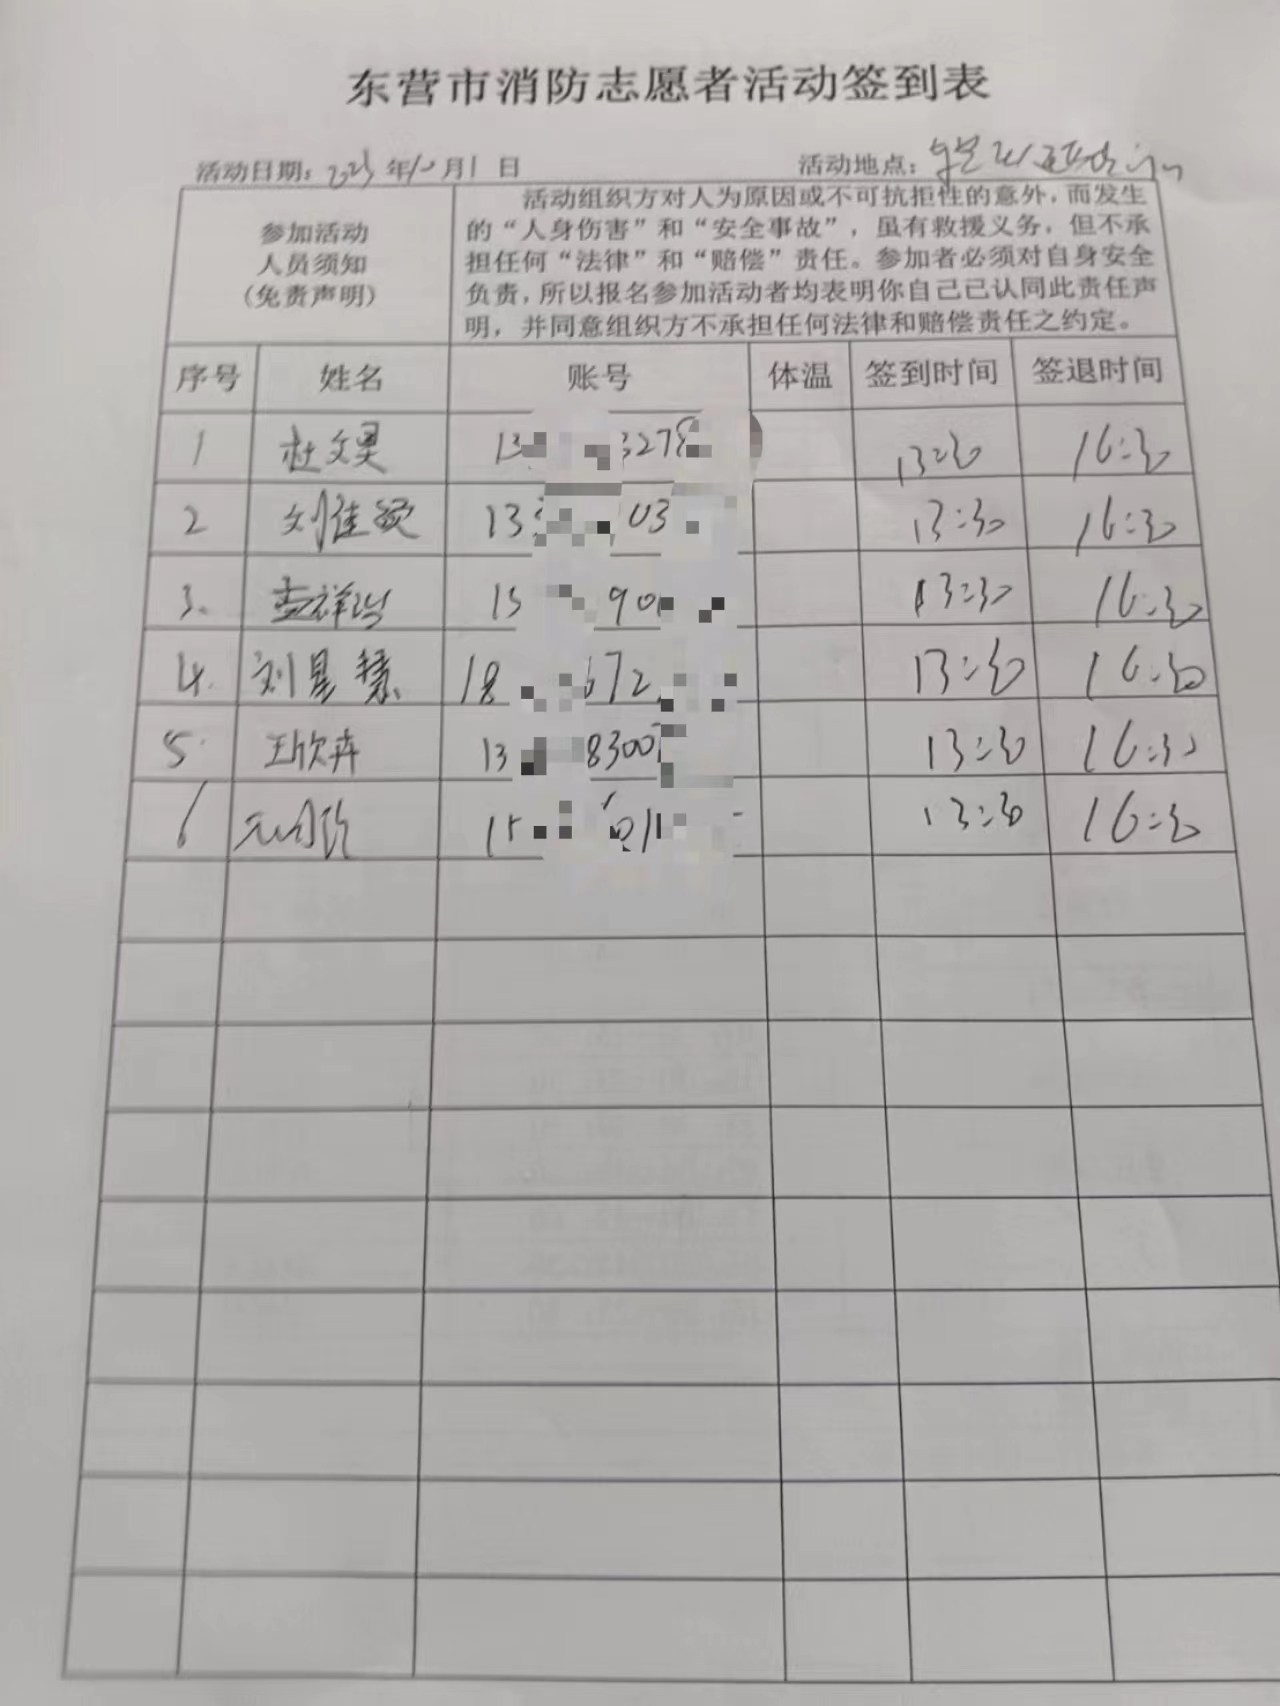 东营市消防志愿者活动签到表
活动日期：2023年10月1日 活动地点：
参加活动
人员须知
（免责声明）
活动组织方对人为原因或不可抗拒性的意外，而发生
的“人身伤害”和“安全事故”，虽有救援义务，但不承
担任何“法律”和“赔偿”责任。参加者必须对自身安全
负责，所以报名参加活动者均表明你自己已认同此责任声
明，并同意组织方不承担任何法律和赔偿责任之约定。
序号 姓名 账号 体温 签到时间 签退时间
1 杜文昊 13 327 13:30 16:30
2 刘佳 13 03 13:30 16:30
3. 祥 15 90 13:30 16:30
4. 刘星慧 18 672 13:30 16:30
5. 王欣卉 13 8300 13:30 16:30
6 15 01 13:30 16:30